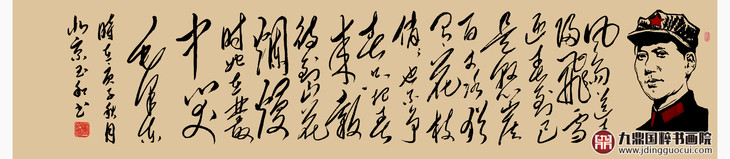 风雨送春
归飞雪
迎春到已
是悬崖
百丈冰犹
有花枝
俏〻也不争
春只把春
来报
待到山花
烂漫
时她在丛
中笑
毛泽东
时在庚子秋月
北京玉书
九鼎国粹书画院
www.jdingguocui.com